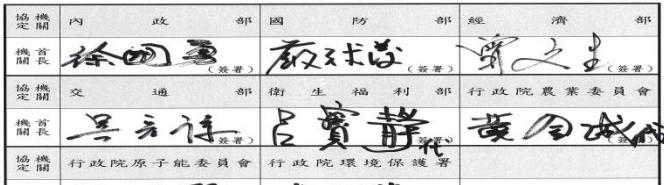 協定機關 內政部 國防部 經濟部
機關首長 徐國勇 (簽署) 嚴德發 (簽署) 曾文生 (簽署)
協定機關 交通部 衛生福利部 行政院農業委員會
機關首長 吳宏謀 (簽署) 呂寶靜代 黃金城代
協定機關 行政院原子能委員會 行政院環境保護署